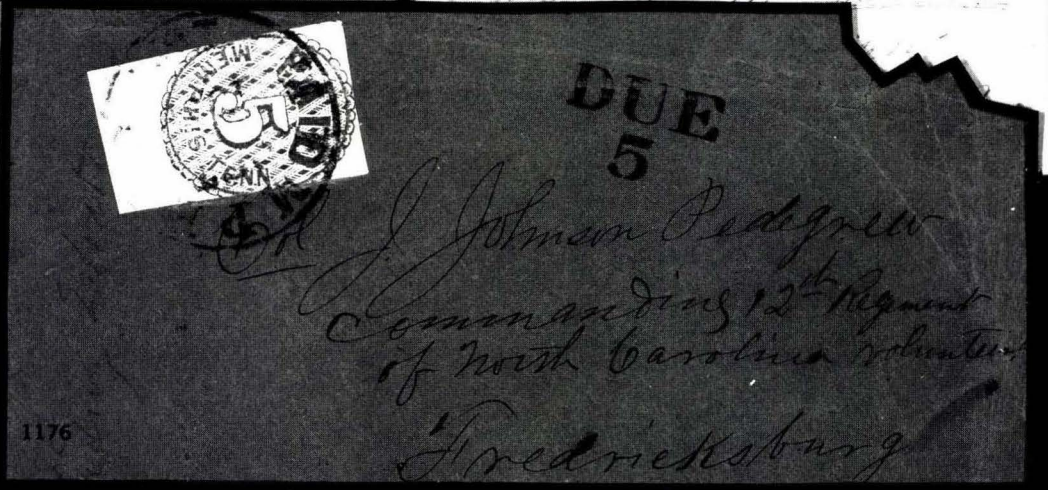 PAID
MEMPHIS TENN
5
DUE
5
Col J. Johnson Pedegrew
Commanding 12th Regiment
of North Carolina volunteers
Fredericksburg
1176